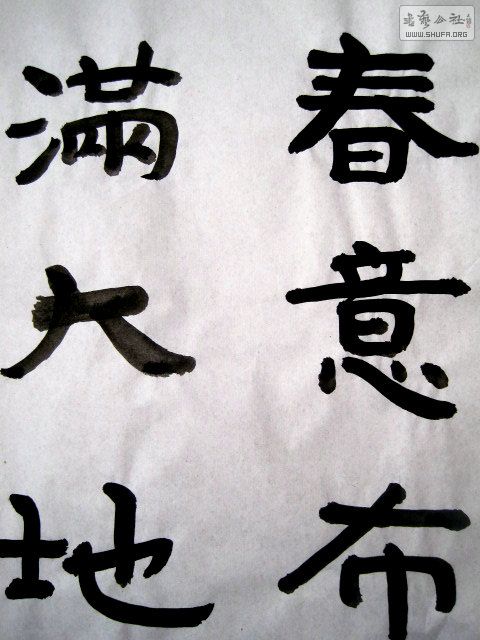 春意布
滿大地
書藝公社
WWW.SHUFA.ORG